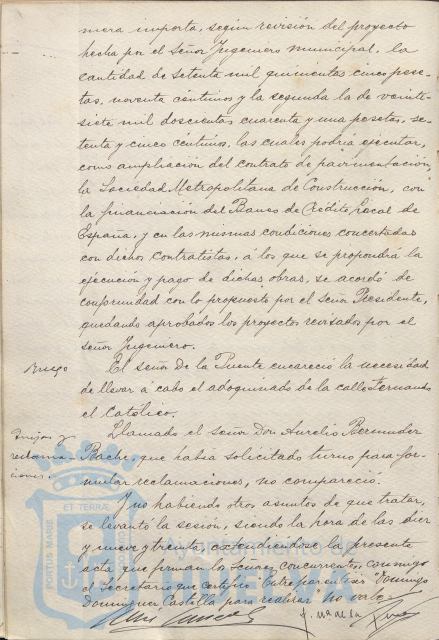 mera importa, según revisión del proyecto
hecha por el señor Ingeniero municipal, la
cantidad de setenta mil quinientas cinco pese-
tas, noventa céntimos y la segunda la de veinte-
siete mil doscientas cuarenta y una pesetas, se-
tenta y cinco céntimos, las cuales podría ejecutar,
como ampliación del contrato de pavimentación,
la Sociedad Metropolitana de Construcción, con
la financiación del Banco de Crédito Local de
España, y en las mismas condiciones concertadas
con dichos contratistas, á los que se propondrá la
ejecución y pago de dichas obras, se acordó de
conformidad con lo propuesto por el señor Presidente,
quedando aprobados los proyectos revisados por el
señor Ingeniero.
Ruego
El señor De la Puente encareció la necesidad
de llevar á cabo el adoquinado de la calle Fernando
el Católico.
Quejas y
reclama-
ciones.
Llamado el señor Don Aurelio Bermudez
que había solicitado turno para for-
mular reclamaciones, no compareció.
Y no habiendo otros asuntos de que tratar,
se levantó la sesión, siendo la hora de las diez
y nueve y treinta, extendiéndose la presente
acta que firman los señores concurrentes, conmigo
el Secretario que certifico. Entre parentesis "Domingo
Dominguez Castilla para realizar" no vale.
PORTUS MARIS
ET TERRAE
Ayuntamiento de
HUELVA